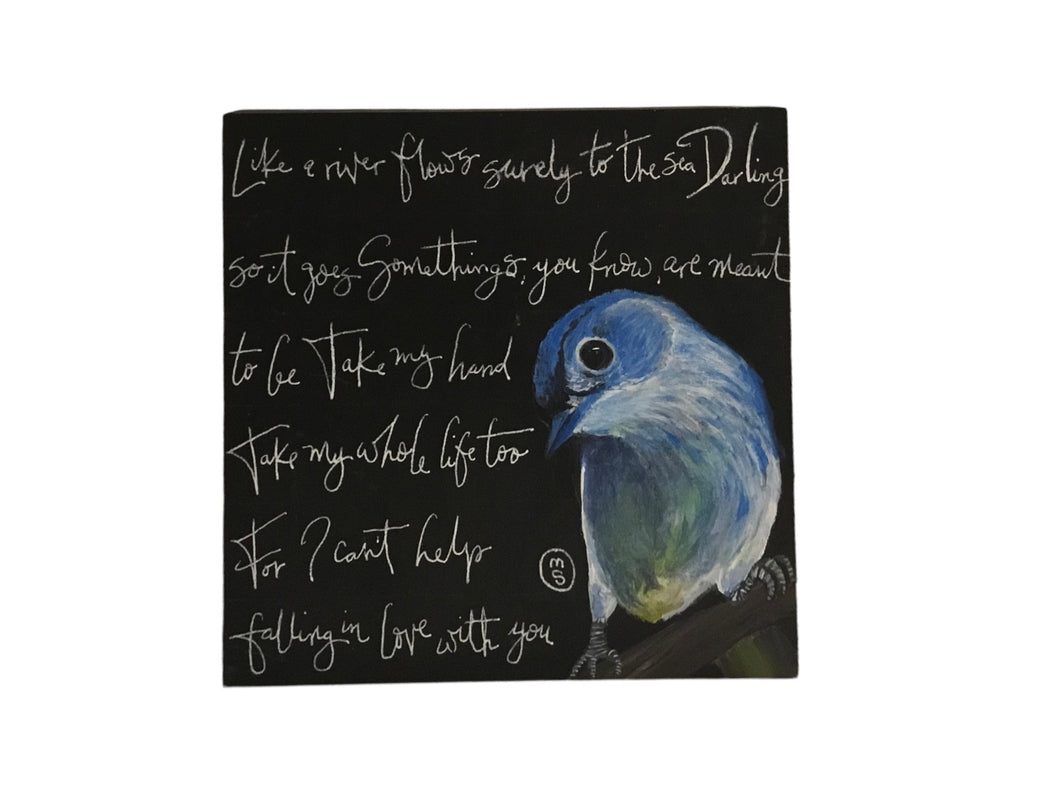 Like a river flows surely to the sea Darling
so it goes Somethings, you know, are meant
to be Take my hand
Take my whole life too
For I can't help
falling in love with you
MS